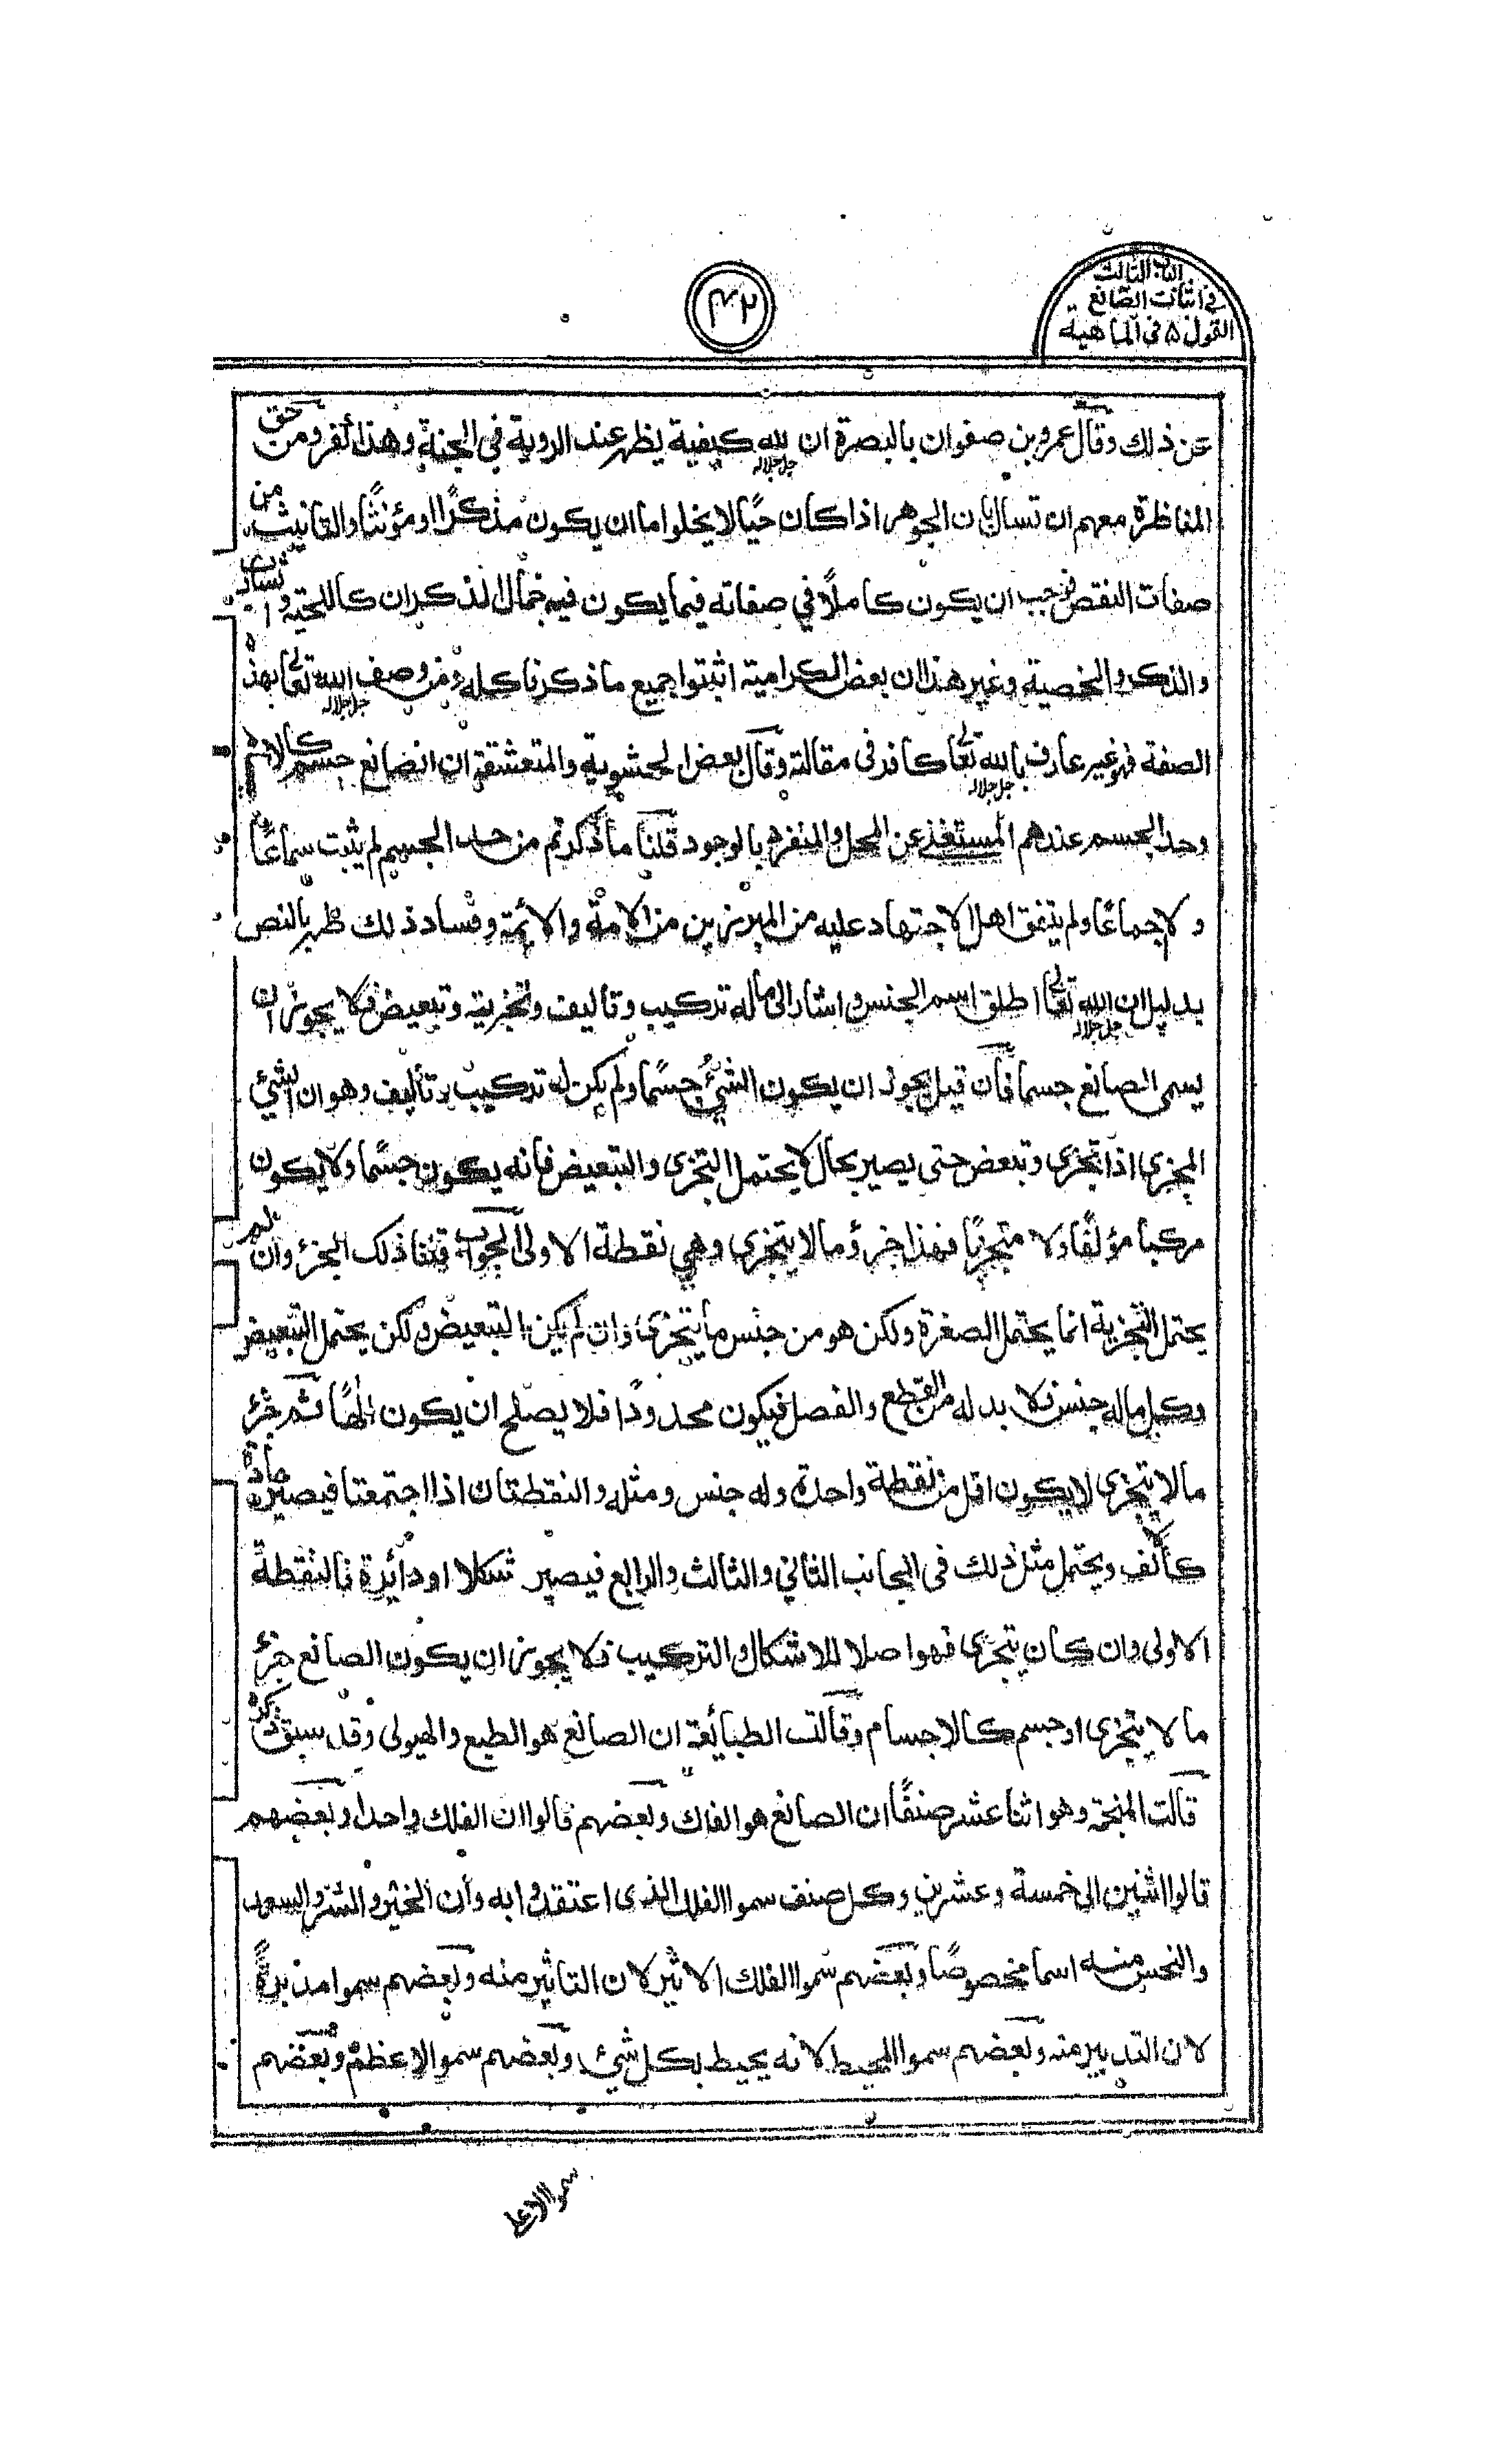 الباب الثالث
في اثبات الصانع
القول ۵ في الماهية
۴۲
عن ذلك وقال عمرو بن صفوان بالبصرة ان لله جل جلاله كيفية يظهر عند الروية في الجنة وهذا كفر ومن حق
المناظرة معهم ان تسال بان الجوهر اذا كان حيًا لا يخلوا اما ان يكون مذكرًا او مؤنثًا والتانيث من
صفات النقص فوجب ان يكون كاملًا في صفاته فيما يكون فيه جمال الذكران كاللحية و
والذكر والخصية وغير هذا ان بعض الكرامية اثبتوا جميع ما ذكرنا كله ومن وصف الله تعالى جل جلاله بهذه
الصفة فهو غير عارف بالله تعالى جل جلاله كافر في مقالته وقال بعض الحشوية والمتعشقة ان الصانع جسم كالاجسام
وحد الجسم عندهم المستغني عن المحل والمنفرد بالوجود قلنا ما ذكرتم من حد الجسم لم يثبت سماعًا
ولا اجماعًا ولم يتفق اهل الاجتهاد عليه من المبرزين من الامة والائمة وفساد ذلك ظهر بالنص
بدليل ان الله تعالى جل جلاله اطلق اسم الجنس واشار الى ماله تركيب وتاليف وتجزية وتبعيض فلا يجوز ان
يسمى الصانع جسما فان قيل يجوز ان يكون الشيء جسمًا ولم يكن له تركيب وتأليف وهو ان الشيء
المجزى اذا تجزى وتبعض حتى يصير بحال لا يحتمل التجزى والتبعيض فانه يكون جسمًا ولا يكون
مركبا مؤلفًا ولا متجزيًا فهذا جزؤ ما لا يتجزى وهي نقطة الاولى الجواب قلنا ذلك الجزء وان لم
يحتمل التجزية انما يحتمل الصغرة ولكن هو من جنس ما يتجزى وان لم يكن التبعيض ولكن يحتمل التبعيض
وكل ماله جنس فلا بد له من القطع والفصل فيكون محدودًا فلا يصلح ان يكون الٰهًا ثم جزء
ما لا يتجزى لا يكون اقل من نقطة واحدة وله جنس ومثله والنقطتان اذا اجتمعتا فيصير
كألف ويحتمل مثل ذلك في الجانب الثاني والثالث والرابع فيصير شكلا او دائرة فالنقطة
الاولى وان كان يتجزى فهو اصلا للاشكال والتركيب فلا يجوز ان يكون الصانع جزء
ما لا يتجزى او جسم كالاجسام وقالت الطبائعة ان الصانع هو الطبع والهيولى وقد سبق ذكره
قالت المنجمة وهو اثنا عشر صنفًا ان الصانع هو الفلك وبعضهم قالوا ان الفلك واحدا وبعضهم
قالوا اثنين الى خمسة وعشرين وكل صنف سموا الفلك الذى اعتقدوا به وان الخير والشر والسعد
والنحس منه اسما مخصوصًا وبعضهم سموا الفلك الاثير لان التاثير منه وبعضهم سموا مدبرةً
لان التدبير منه وبعضهم سموا المحيط لانه يحيط بكل شيء وبعضهم سموا الاعظم وبعضهم
سموا الاعلى